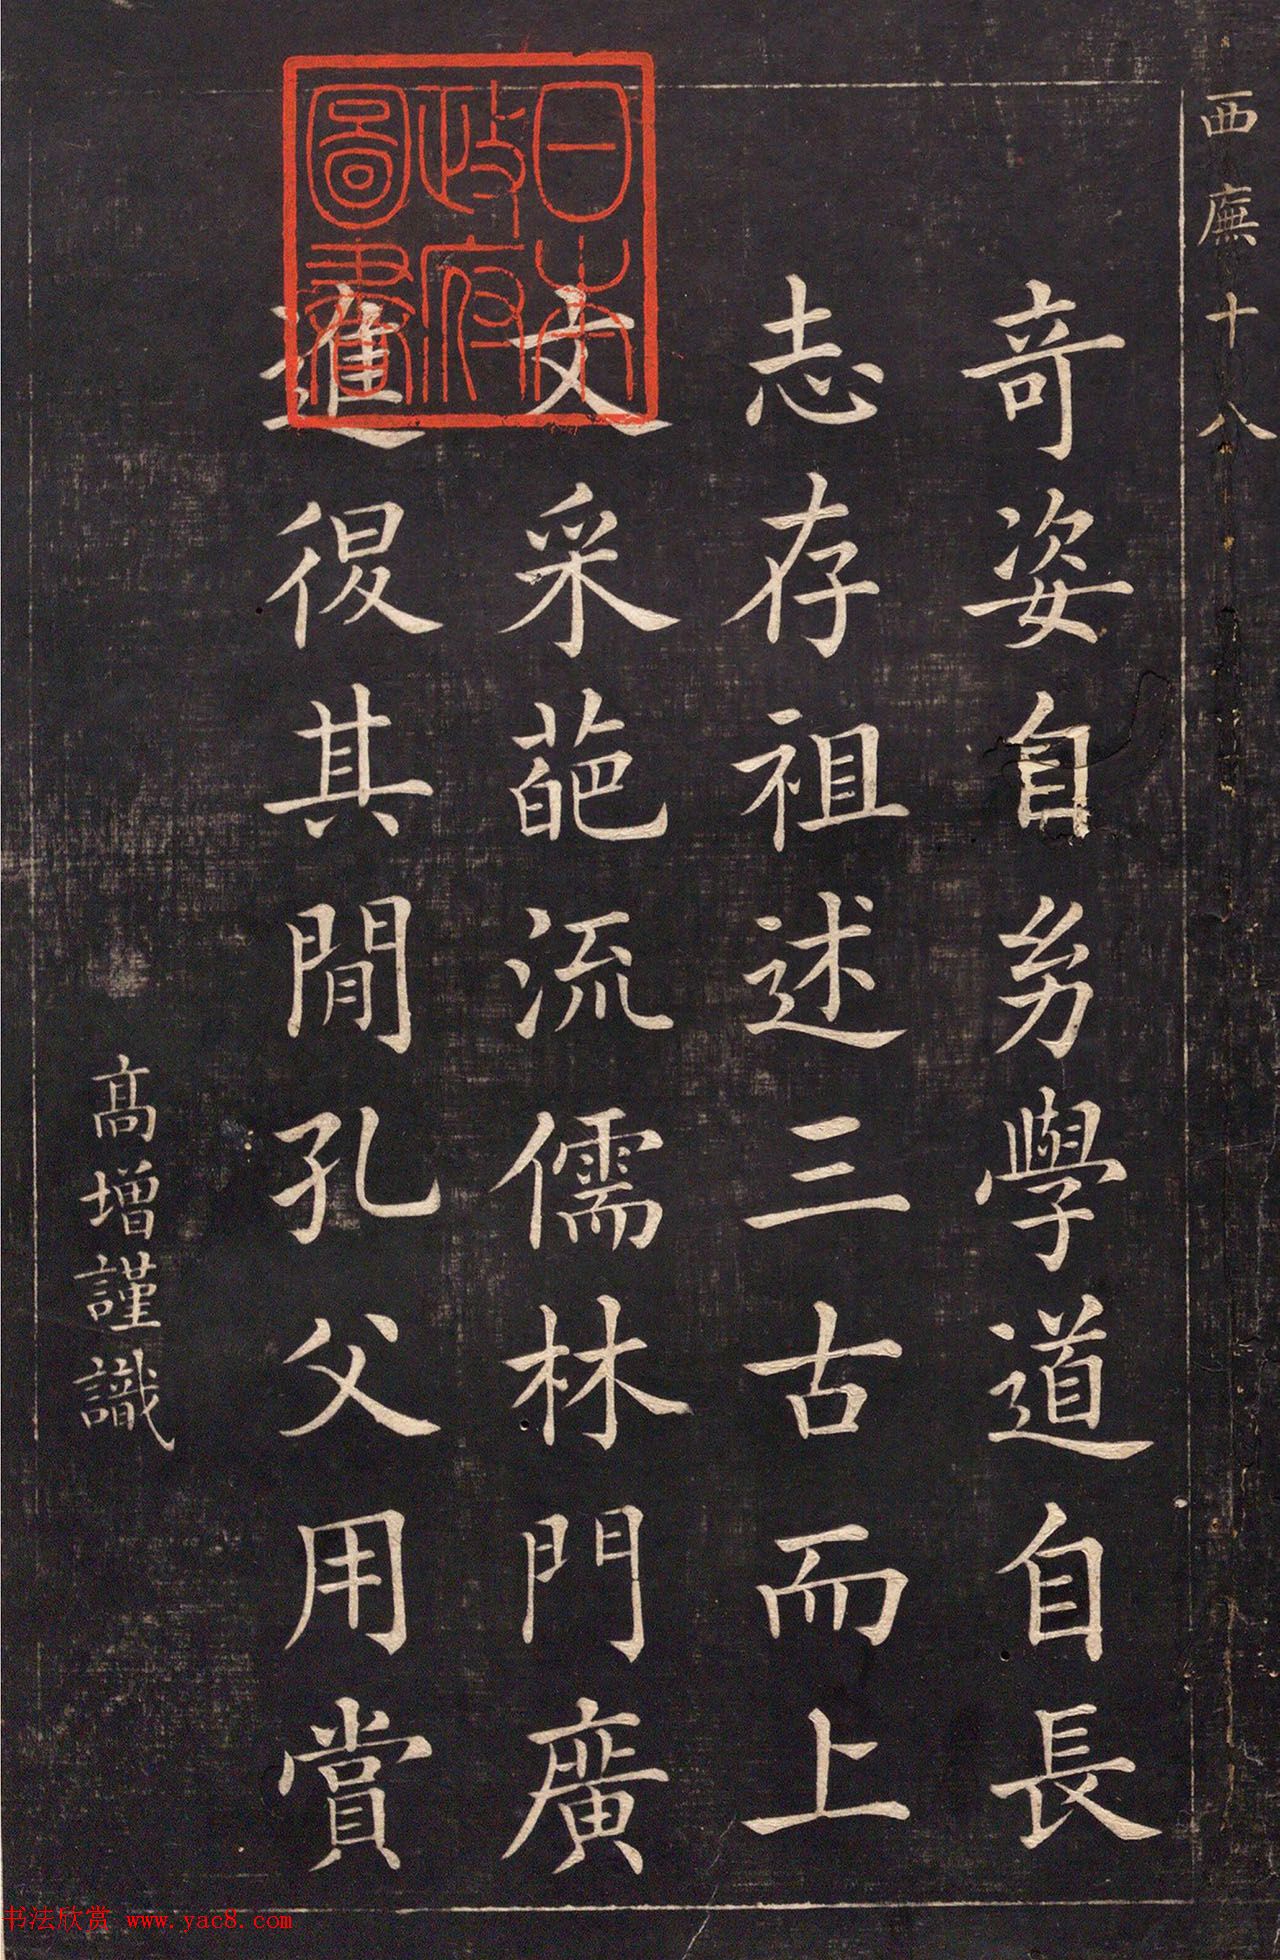 西廡十八
奇姿自㓜學道自長
志存祖述三古而上
文采葩流儒林門廣
進退其閒孔父用賞
髙增謹識
日本
政府
圖書
书法欣赏 www.yac8.com